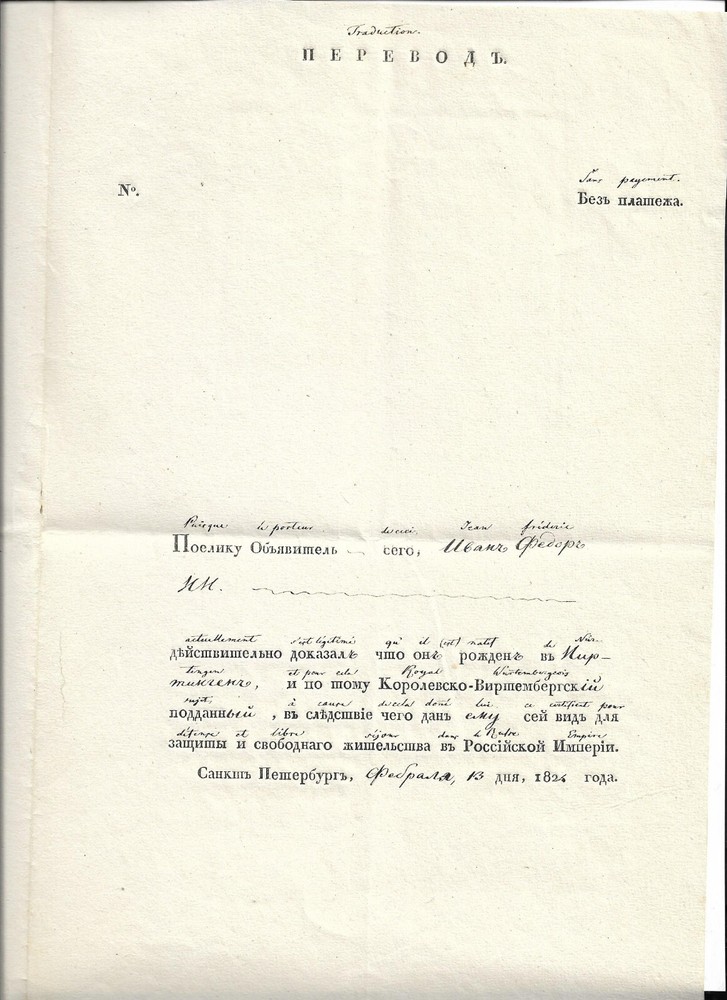 Traduction.
ПЕРЕВОДЪ.
Sans payement.
№.
Безъ платежа.
Puisque le porteur de ceci, Jean fréderic
Поелику Объявитель сего, Иванъ Федоръ
NN.
actuellement s'est légitimé qu'il (est) natif de Nür-
дѣйствительно доказалъ что онъ рожденъ въ Нир-
tingen et pour cela Royal Würtembergeois
тингенъ, и по тому Королевско-Виртембергскій
sujet, à cause de cela donné lui ce certificat pour
подданный, въ слѣдствіе чего данъ ему сей видъ для
défense et libre séjour dans le Russe Empire
защиты и свободнаго жительства въ Россійской Имперіи.
Санктъ Петербургъ, Февраля, 13 дня, 1824 года.